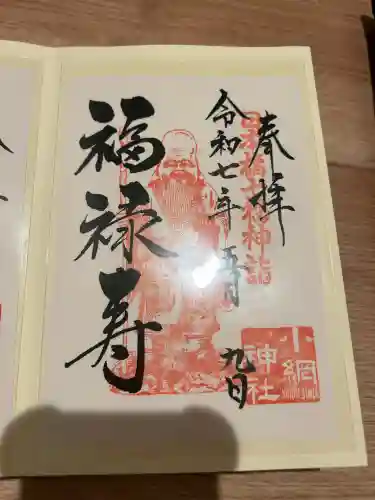 奉拝
日本橋七福神詣
令和七年 五月 九日
福禄寿
小網
神社